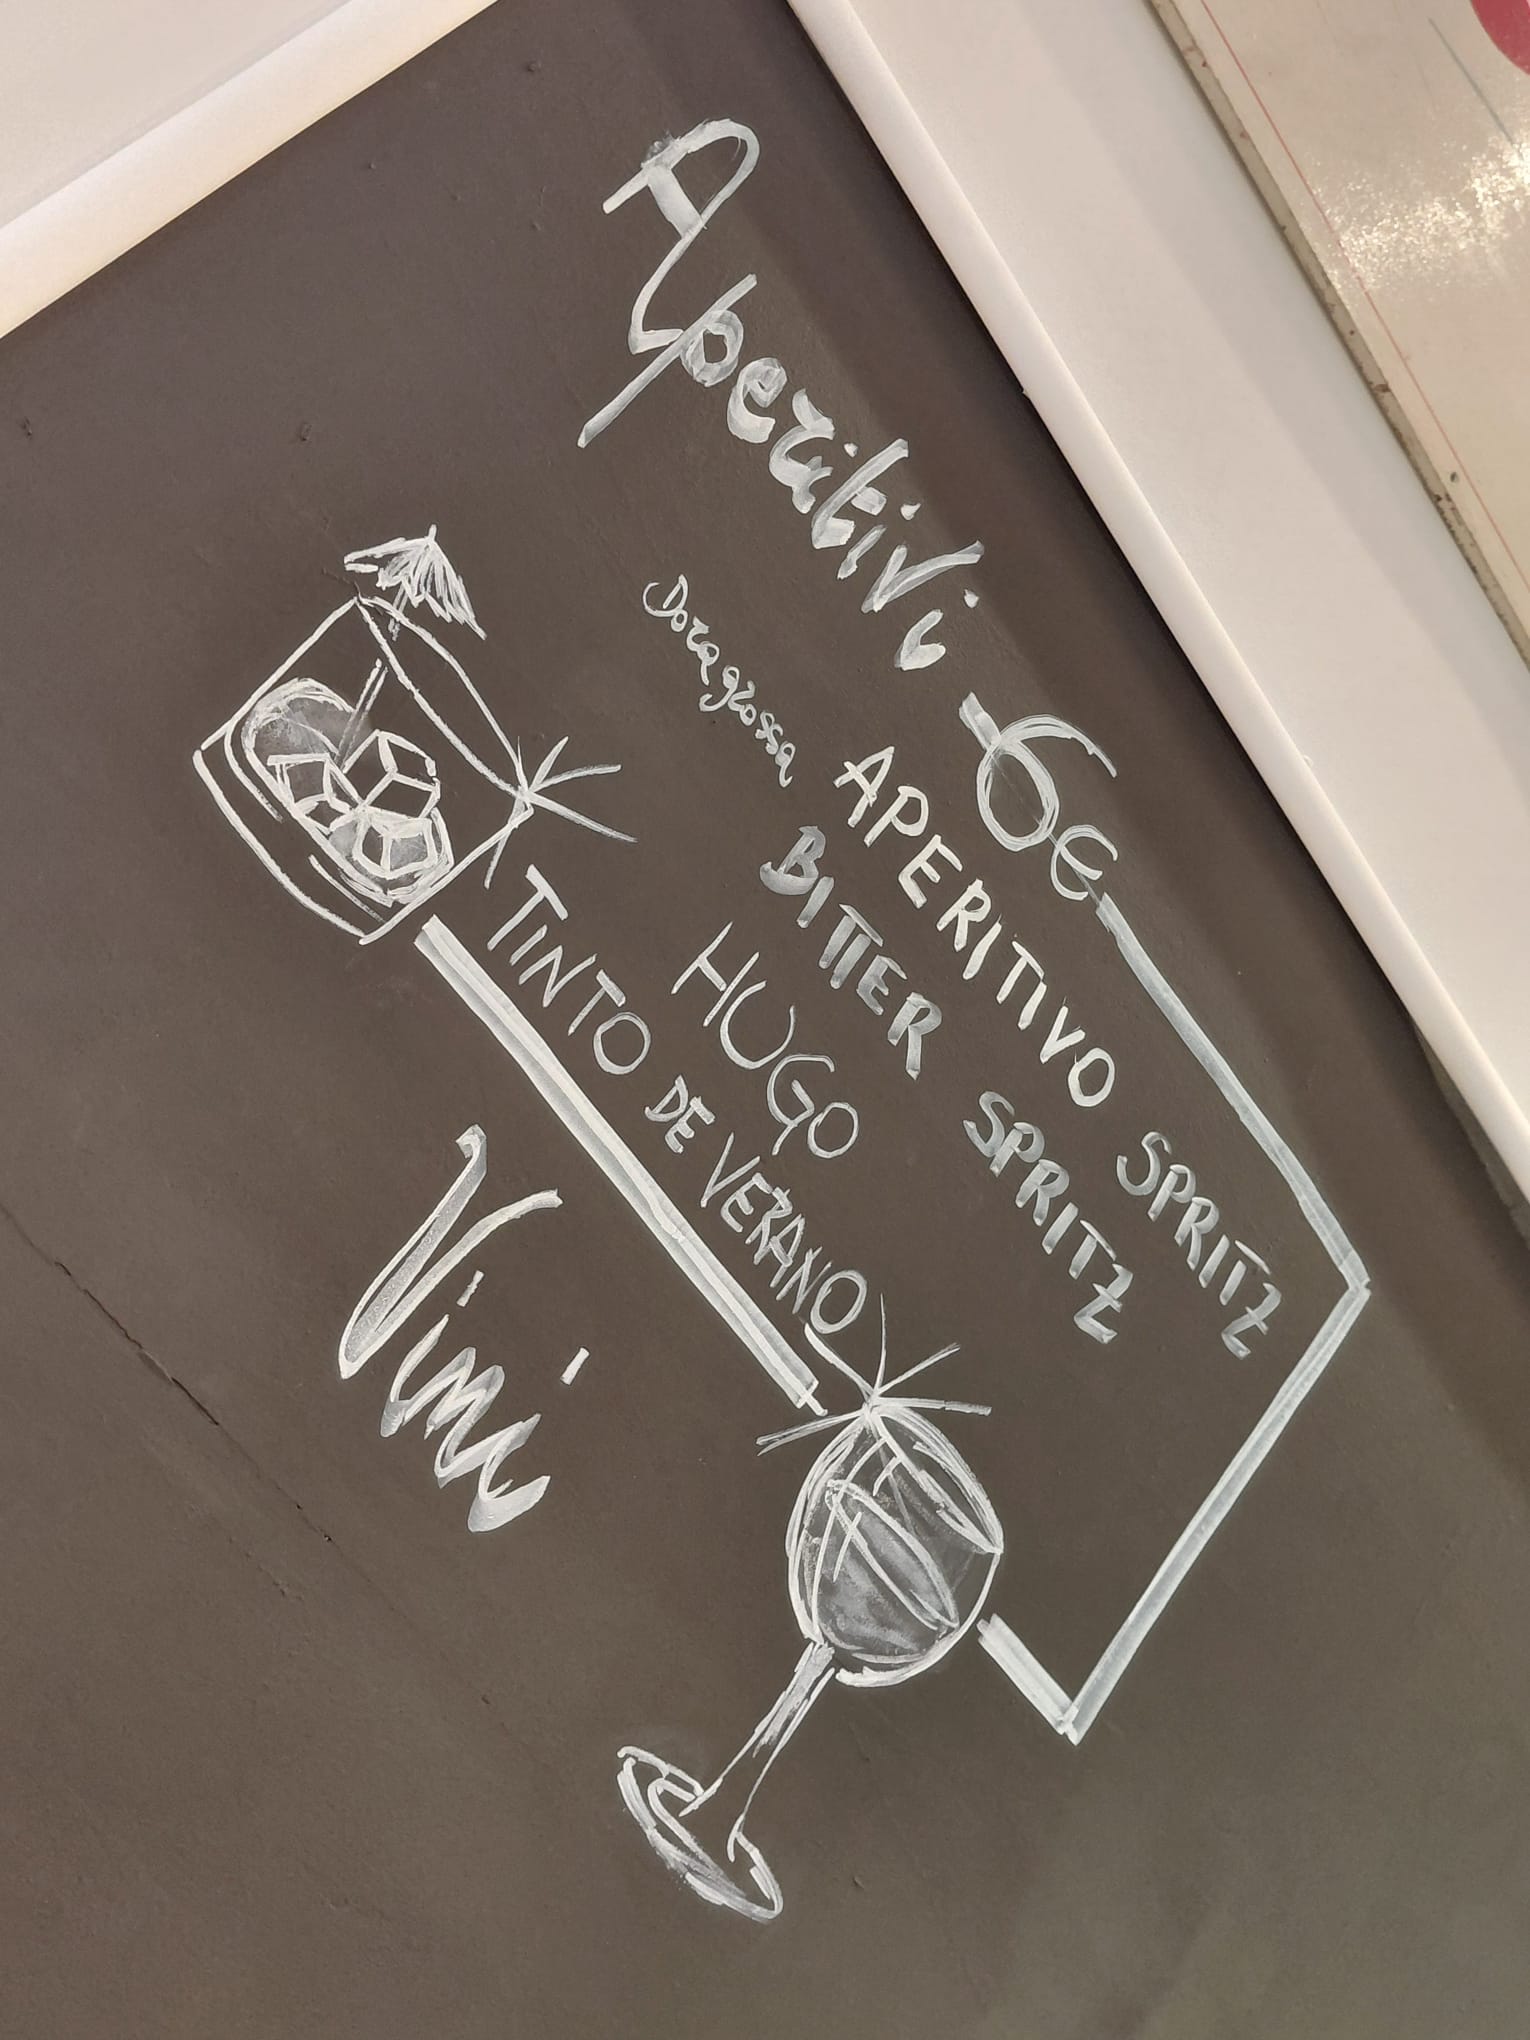 Aperitivi 6€
Doragrossa
APERITIVO SPRITZ
BITTER SPRITZ
HUGO
TINTO DE VERANO
Vini